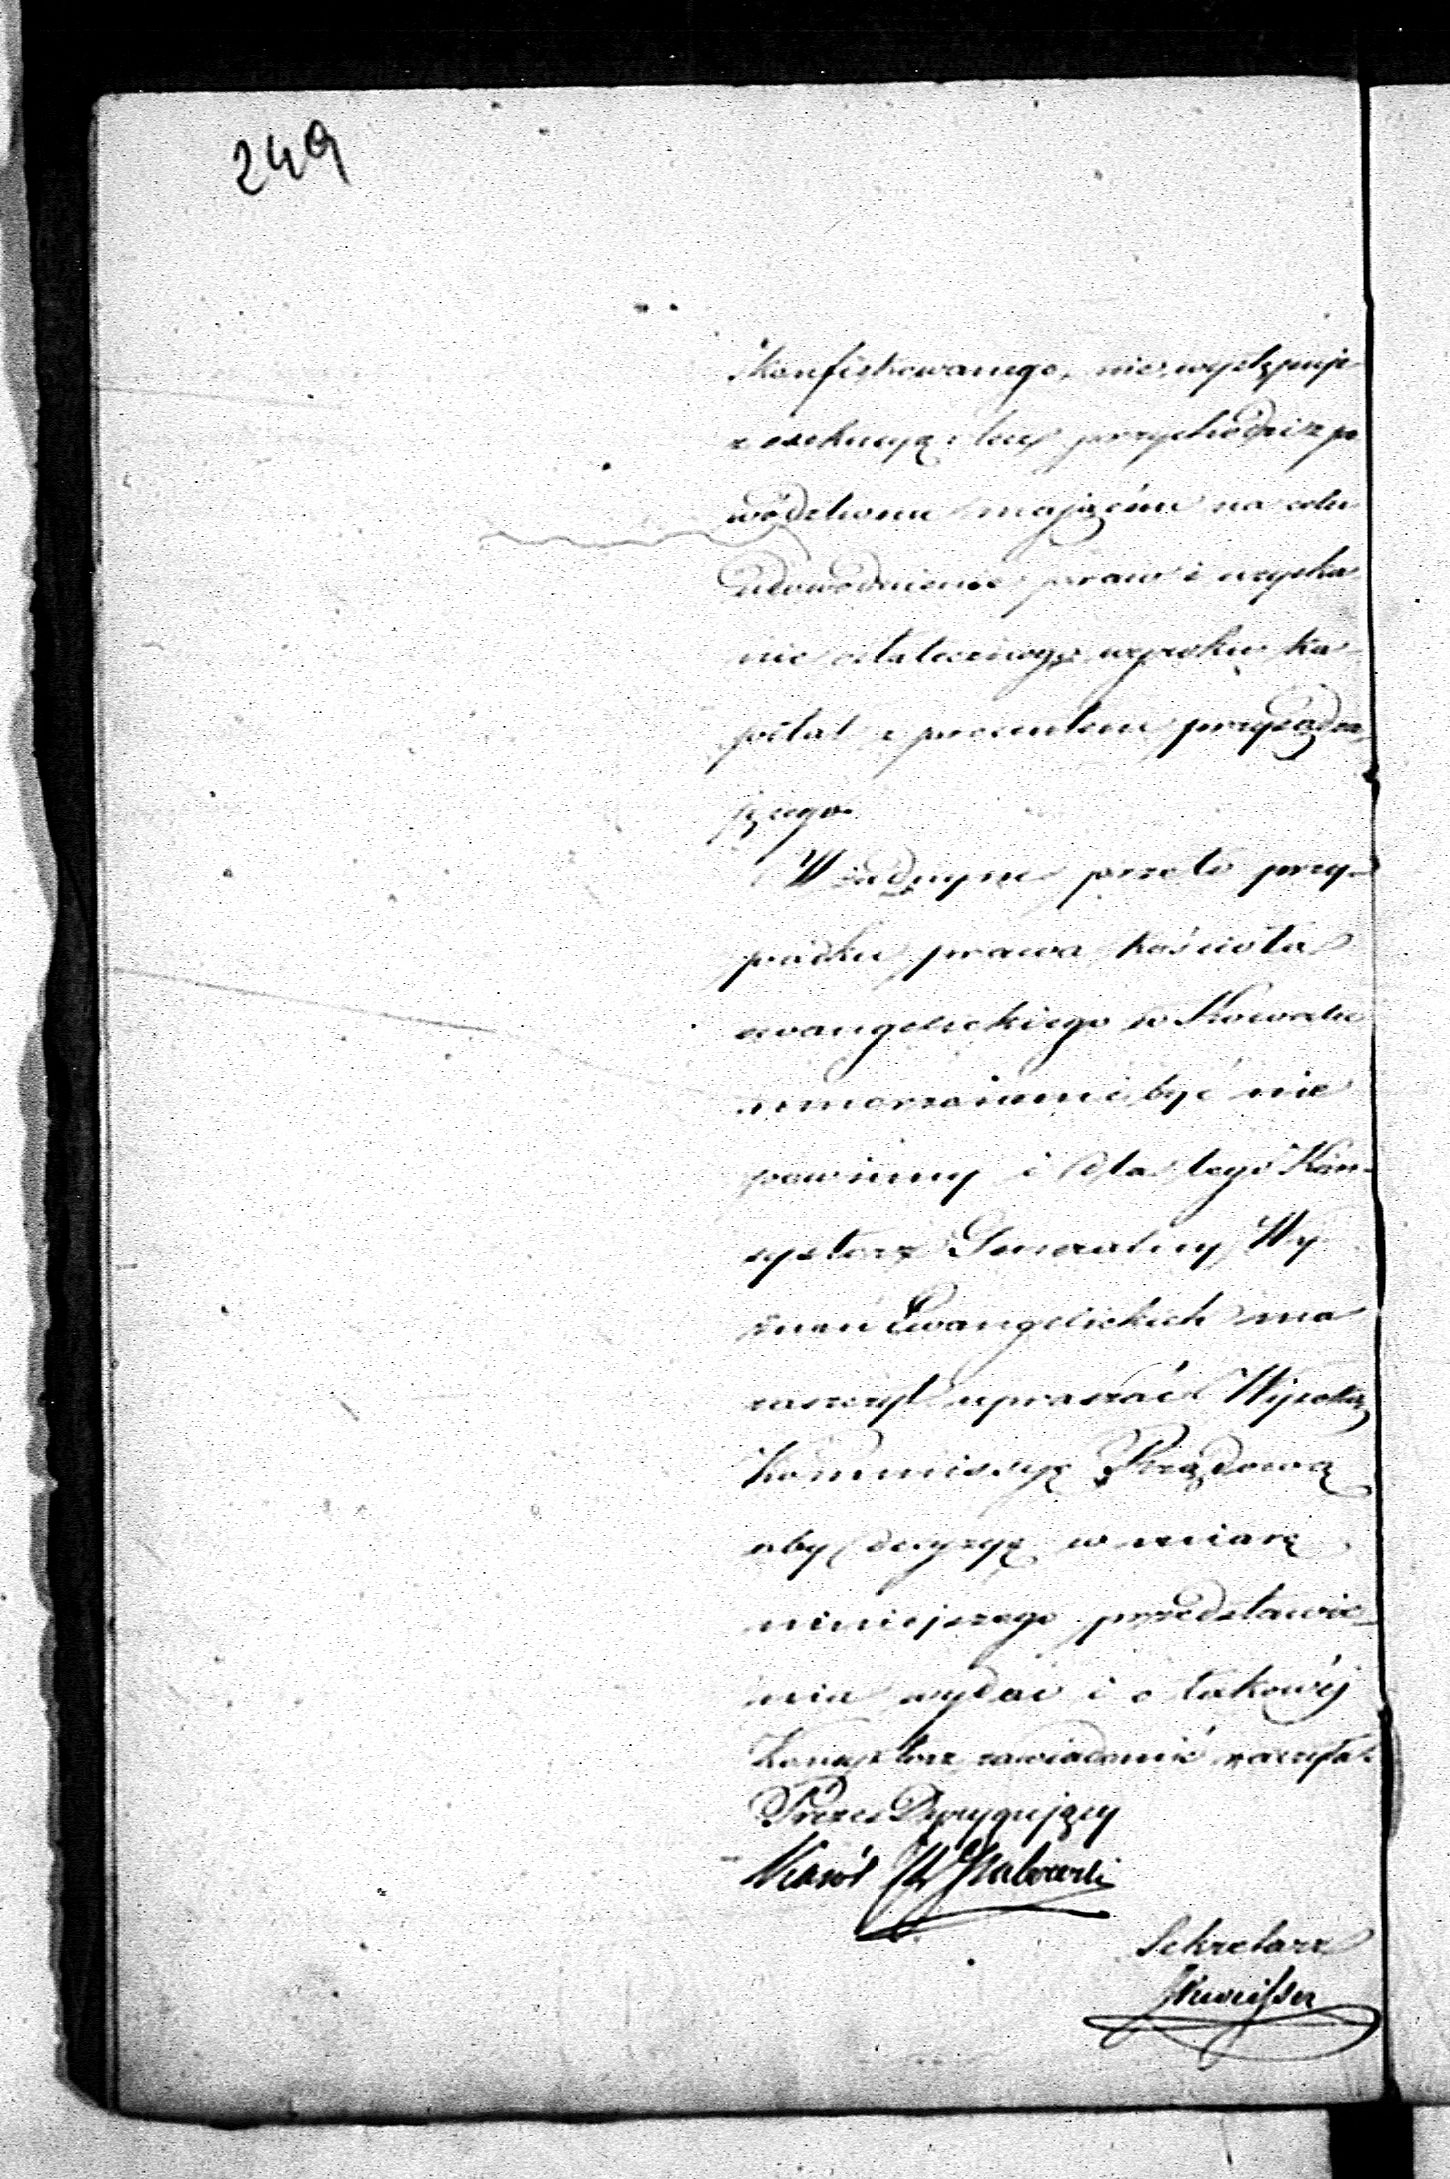 249
skonfiskowanego, nie występuje
z exekucyą lecz przychodzi z po
wództwem mającém na celu
udowodnienie praw i uzyska
nie ostatecznego wyroku ka
pitał z procentem przysądza
jącego.
W żadnym przeto przy-
padku prawa kościoła
ewangelickiego w Kowalu
umorzonemi być nie
powinny i dla tego Kon-
systorz Generalny Wy
znań Ewangelickich ma
zaszczyt upraszać Wysoką
Kommissyę Rządową
aby decyzyę w miarę
niniejszego przedstawie
nia wydać i o takowéj
Konsystorz zawiadomić raczyła.
Prezes Dyrygujący
Karól
Sekretarz